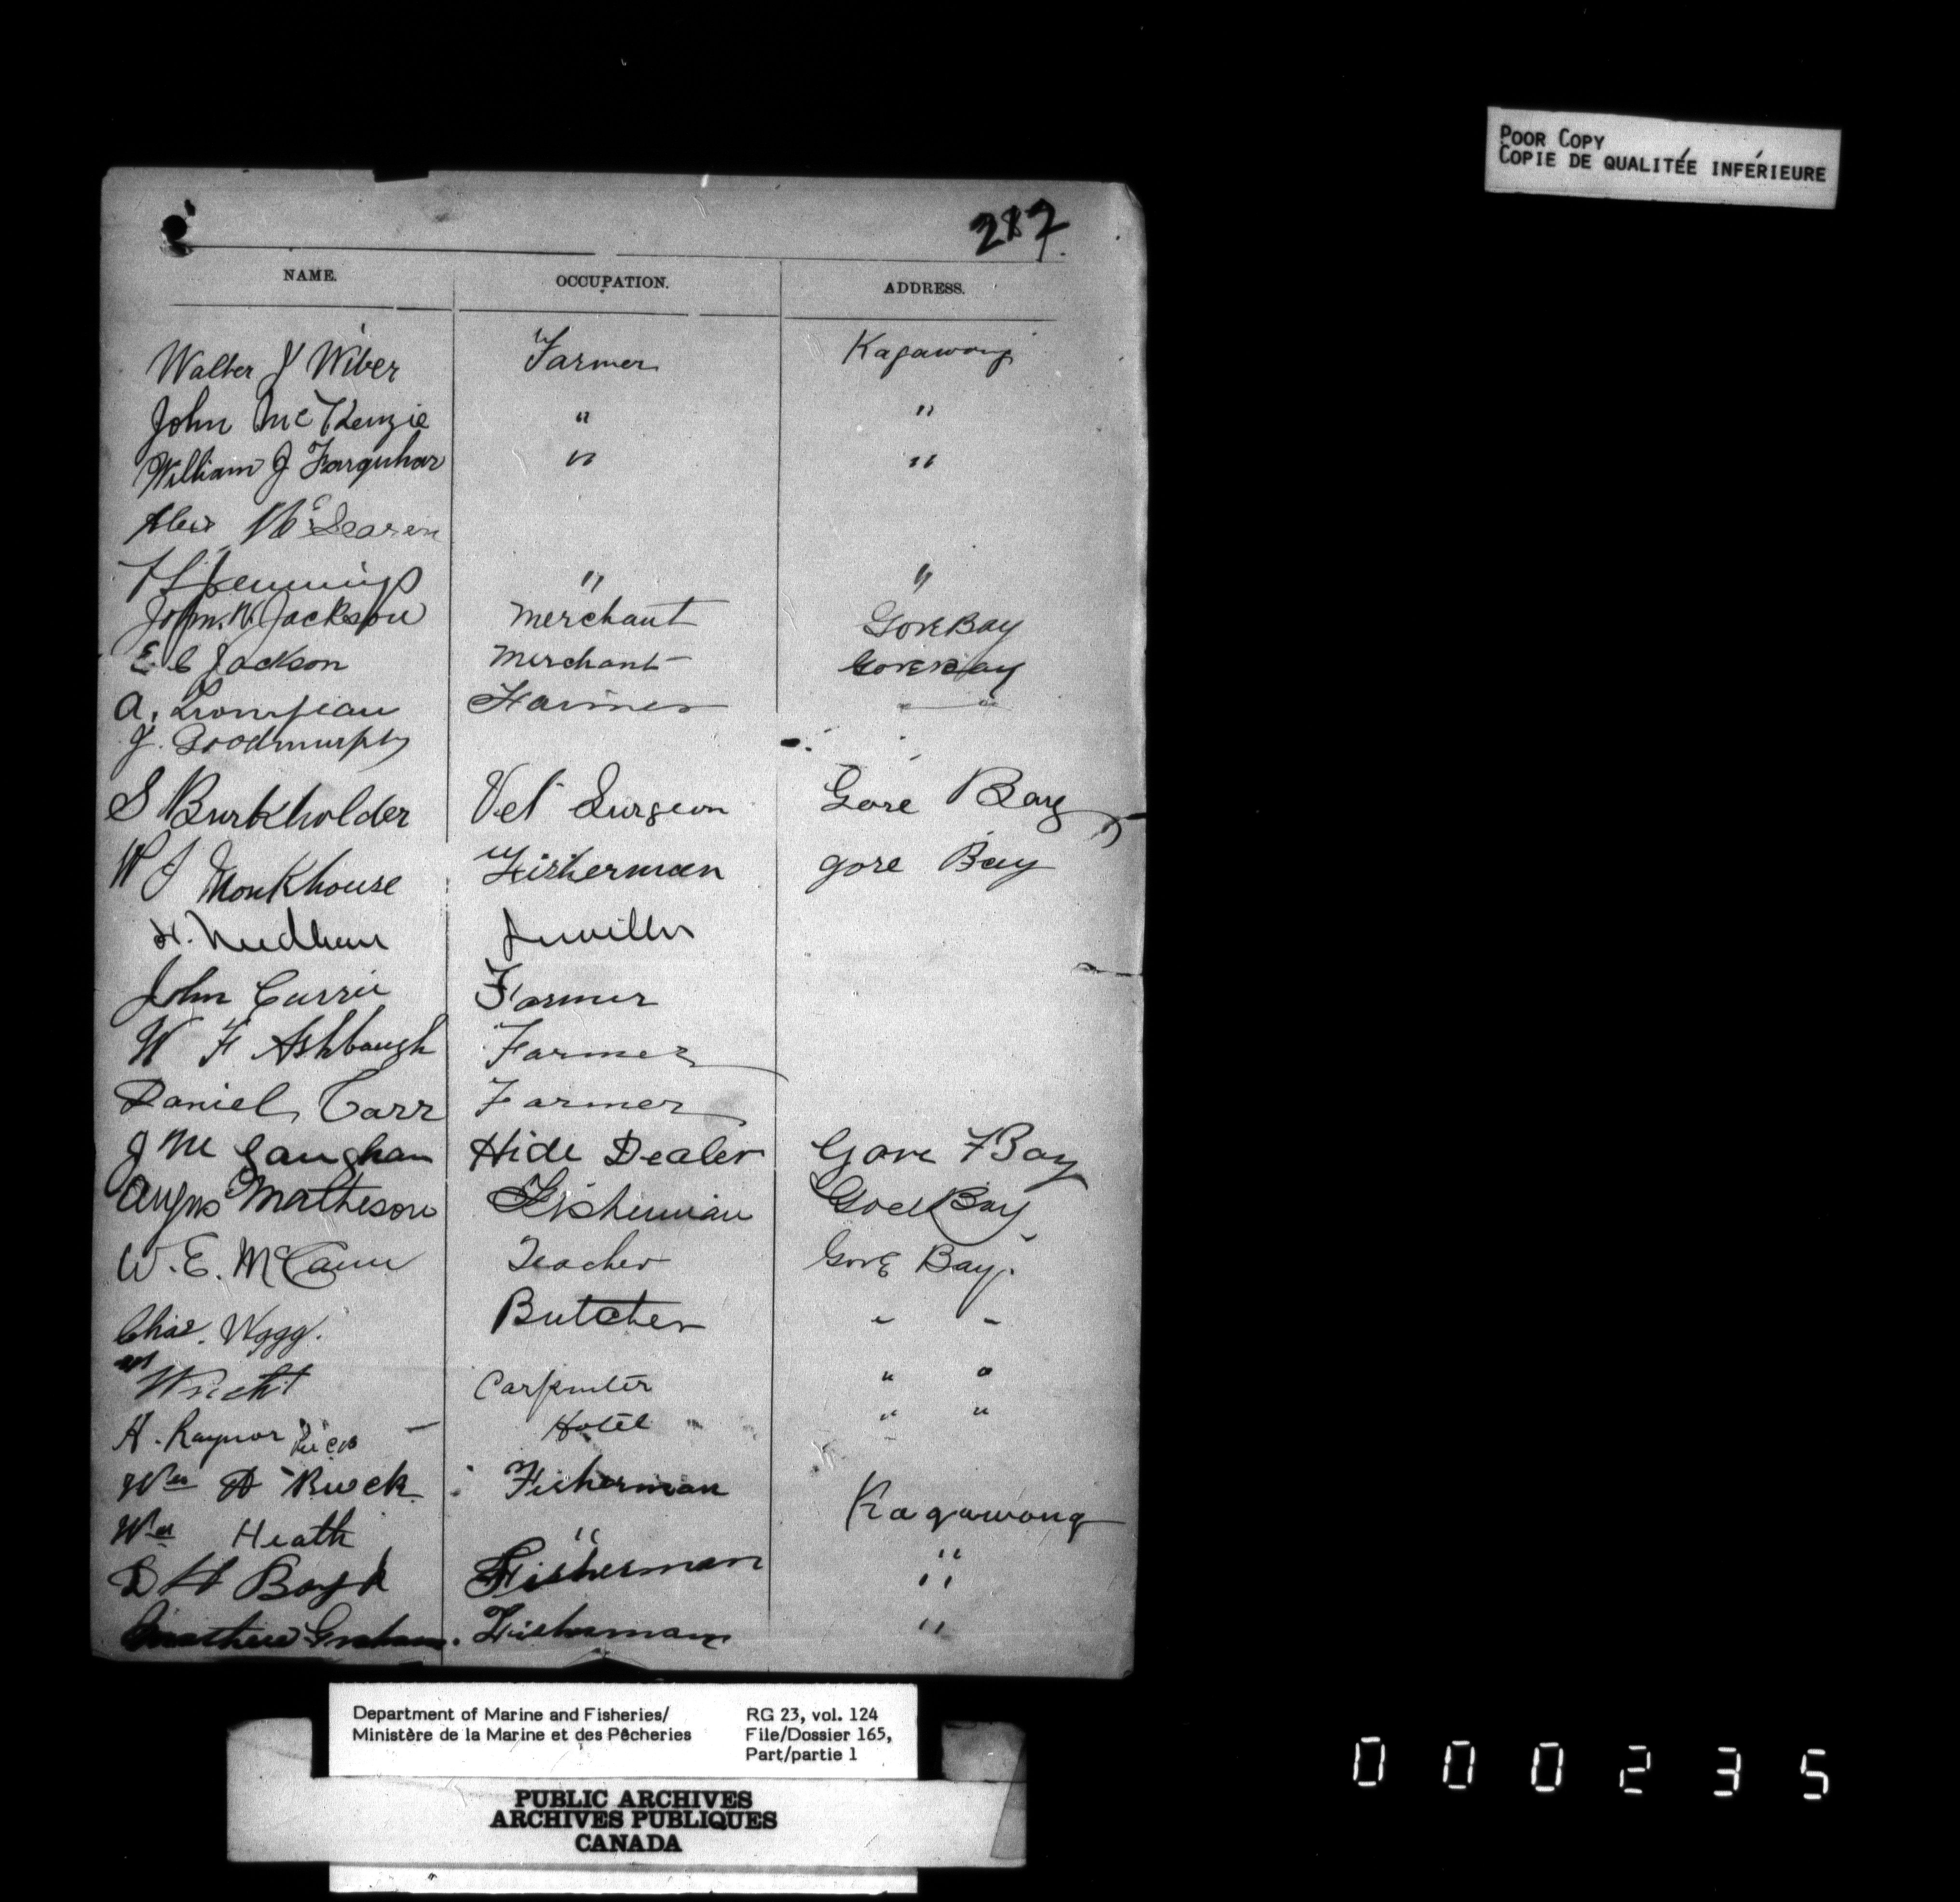 POOR COPY
COPIE DE QUALITÉE INFÉRIEURE
217.
NAME. OCCUPATION. ADDRESS.
Walter J Wiber Farmer Kagawong
John McKenzie " "
William J Farquhar " "
Alex McLearen
Jennings " "
John. W. Jackson Merchant Gore Bay
E. C Jackson Merchant Gore Bay
A. Farmer "
J. Goodmurphy
S Burkholder Vet Surgeon Gore Bay
W J Monkhouse Fisherman gore Bay
H. Needham Jeweller
John Currie Farmer
W F Ashbaugh Farmer
Daniel Carr Farmer
J McGaughan Hide Dealer Gore Bay
Angus Matheson Fisherman Gore Bay
W. E. McCann Teacher Gore Bay.
Chas. Wagg. Butcher " "
Wm Wright Carpenter " "
H. Raynor Hotel " "
Wm A Buck Fisherman Kagawong
Wm Heath " "
D H Boyd Fisherman "
Matthew Graham. Fisherman "
Department of Marine and Fisheries/ RG 23, vol. 124
Ministère de la Marine et des Pêcheries File/Dossier 165,
Part/partie 1
PUBLIC ARCHIVES
ARCHIVES PUBLIQUES
CANADA
000235